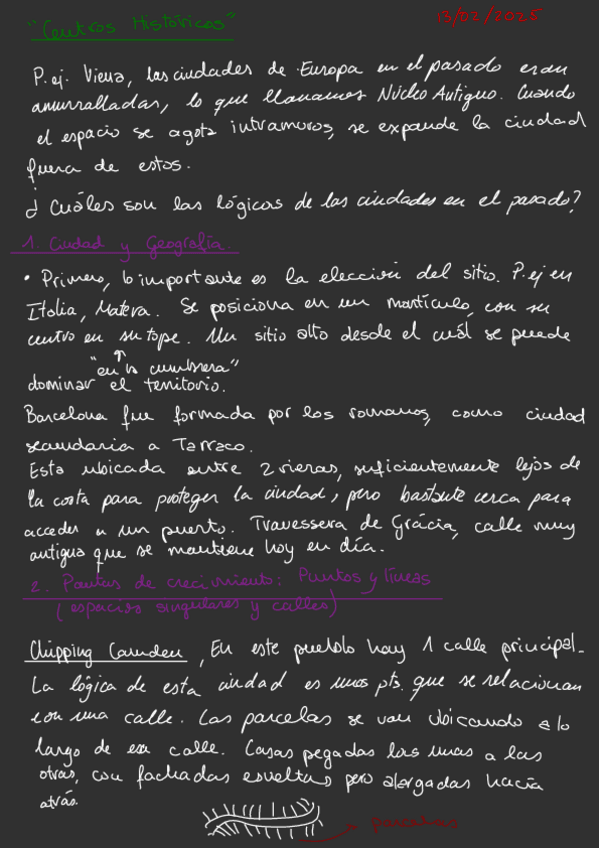 "Centros Históricos" 13/02/2025
P.ej. Viena, las ciudades de Europa en el pasado eran
amurralladas, lo que llamamos Núcleo Antiguo. Cuando
el espacio se agota intramuros, se expande la ciudad
fuera de estos.
¿Cuáles son las lógicas de las ciudades en el pasado?
1. Ciudad y Geografía.
• Primero, lo importante es la elección del sitio. P.ej en
Italia, Matera. Se posiciona en un montículo, con su
centro en su tope. Un sitio alto desde el cuál se puede
"en la cumbrera"
dominar el territorio.
Barcelona fue formada por los romanos, como ciudad
secundaria a Tarraco.
Esta ubicada entre 2 rieras, suficientemente lejos de
la costa para proteger la ciudad, pero bastante cerca para
acceder a un puerto. Travessera de Gràcia, calle muy
antigua que se mantiene hoy en día.
2. Pautas de crecimiento: Puntos y líneas
(espacios singulares y calles)
Chipping Camden, En este pueblo hay 1 calle principal.
La lógica de esta ciudad es unos pts. que se relacionan
con una calle. Las parcelas se van ubicando a lo
largo de esa calle. Casas pegadas las unas a las
otras, con fachadas esveltas pero alargadas hacia
atrás.
parcelas